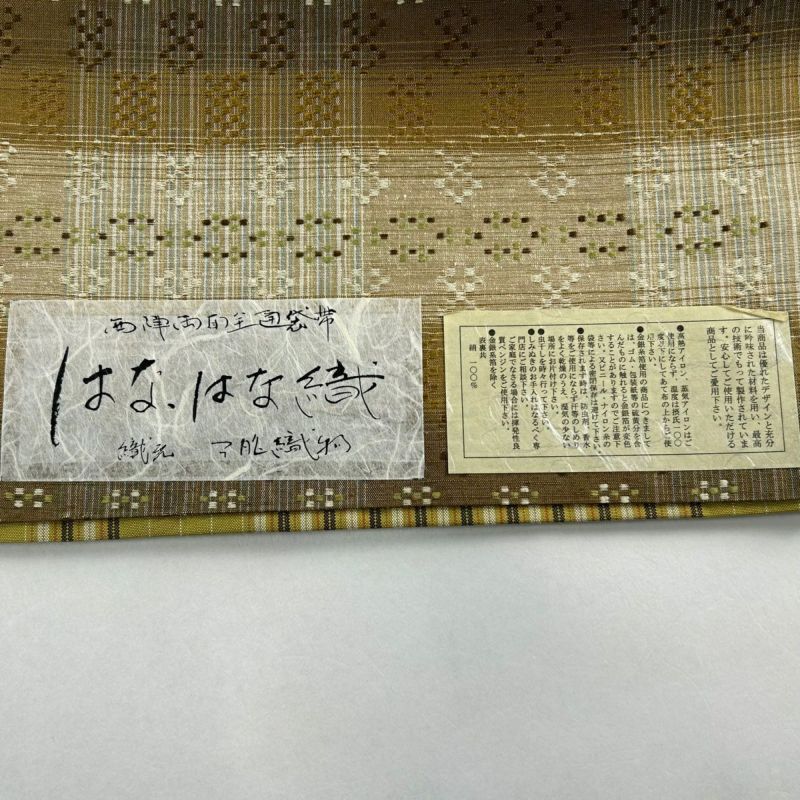 西陣両面全通袋帯
はな、はな織
織元 織物
当商品は優れたデザインと充分
に吟味された材料を用い、最高
の技術でもって製作されていま
す。安心してご使用いただける
商品としてご愛用下さい。
●高熱アイロン、蒸気アイロンはご
使用にならず、温度は摂氏一〇〇
度以下にしてあて布の上からご使
用下さい。
●金銀糸箔使用の商品につきまして
は、ゴム、包装紙等の硫黄分を含
んだものに触れると金銀箔が変色
することがありますのでご注意下
さい。又ビニール、ナイロン糸の
袋等による密閉保存は避けて下さい。
●保存されます時は、防虫剤、香水
等をご使用にならず汗等のしめり
をよく乾燥のうえ、湿気の少ない
場所にお片付け下さい。
●虫干しを時々行って下さい。
●しみぬきのお手入れはなるべく専
門店にご相談下さい。
ご家庭でなさる場合には揮発性良
質ベンジンをご使用下さい。
●金銀糸箔を除く
表裏共
絹 一〇〇%